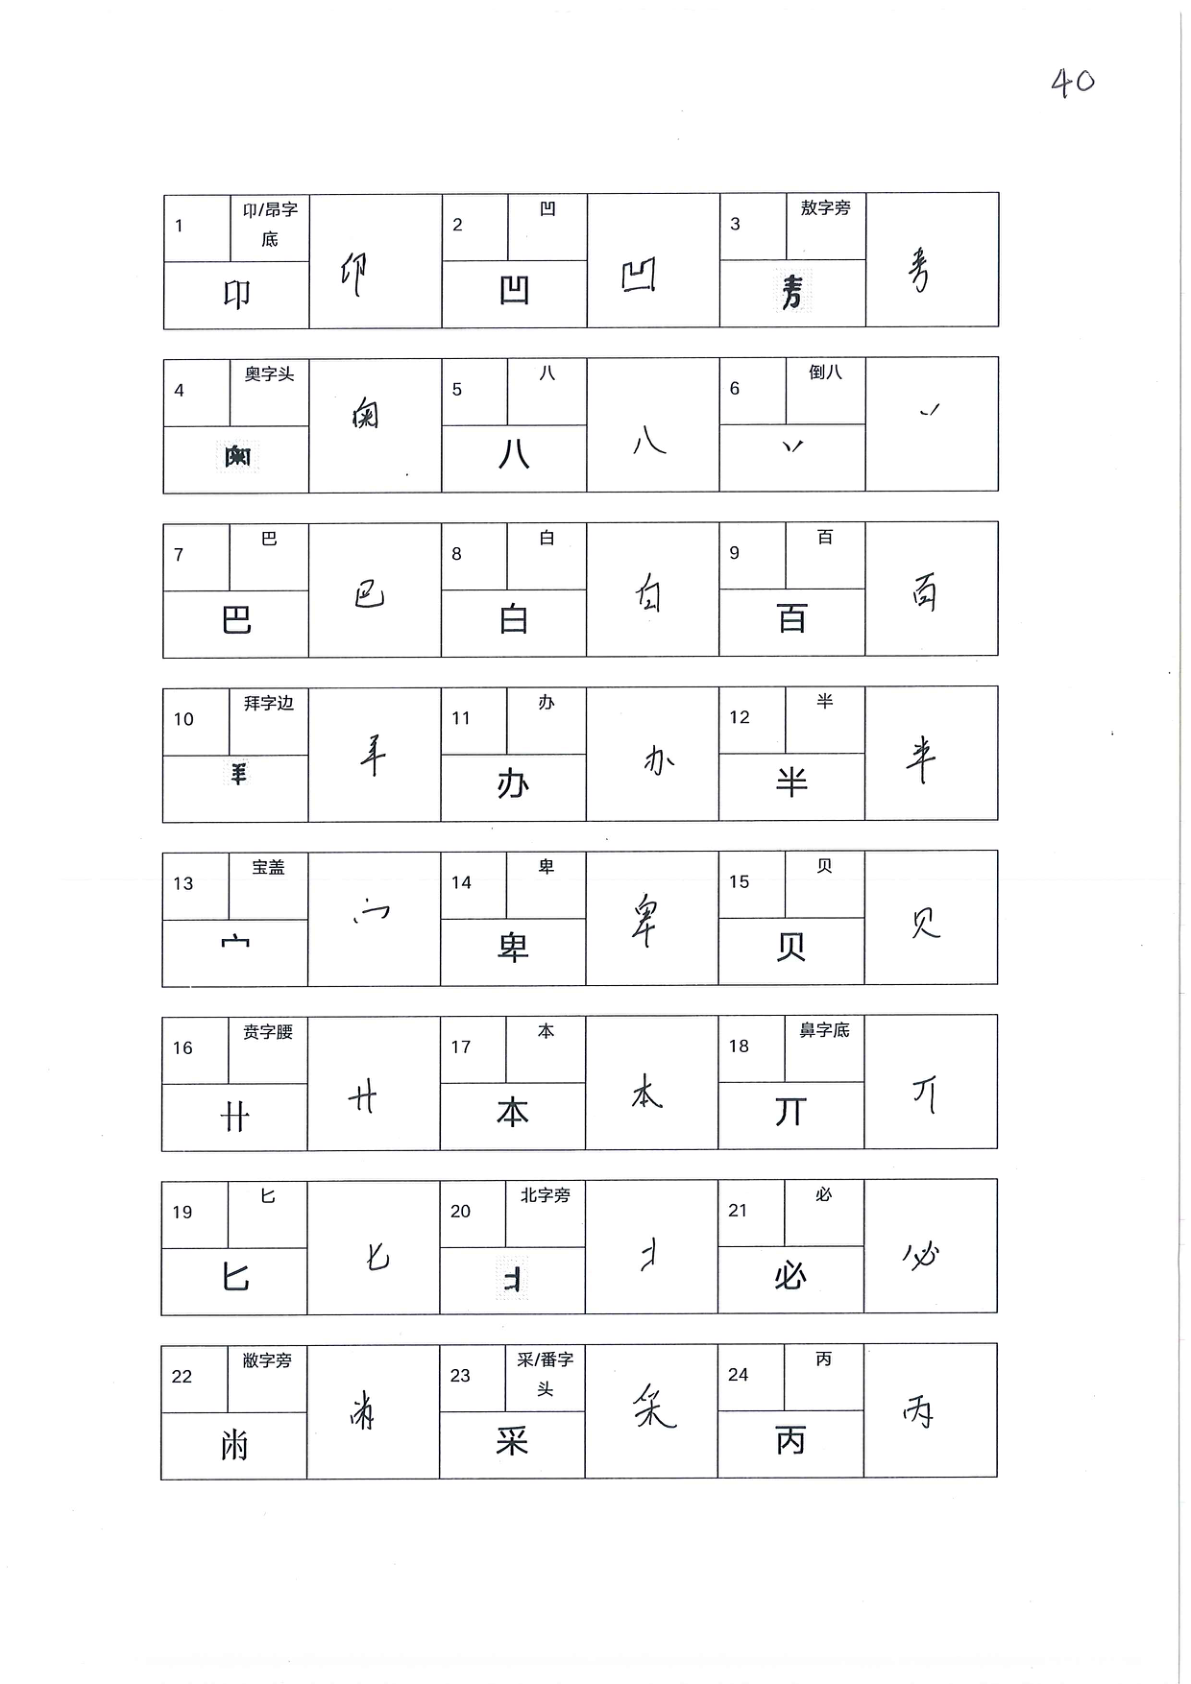 40
1 卬/昂字底 卬 卬
2 凹 凹 凹
3 敖字旁
4 奥字头
5 八 八 八
6 倒八 丷 丷
7 巴 巴 巴
8 白 白 白
9 百 百 百
10 拜字边
11 办 办 办
12 半 半 半
13 宝盖 宀 宀
14 卑 卑 卑
15 贝 贝 贝
16 贲字腰 卄 卄
17 本 本 本
18 鼻字底 丌 丌
19 匕 匕 匕
20 北字旁
21 必 必 必
22 敝字旁 㡀 㡀
23 采/番字头 采 采
24 丙 丙 丙